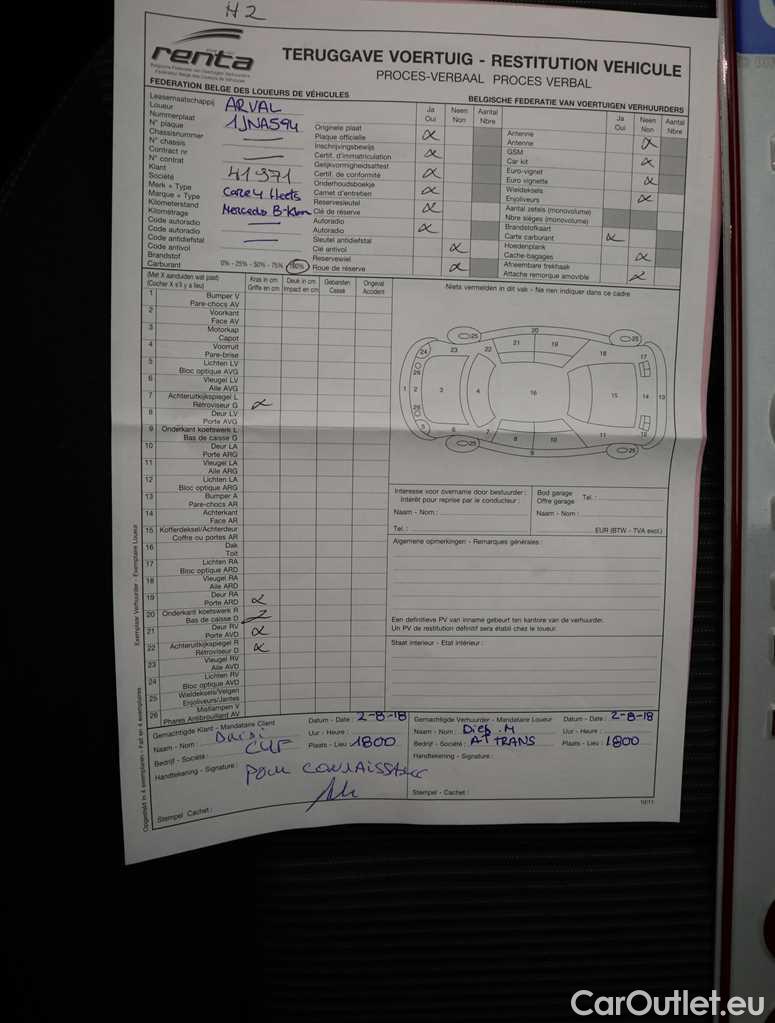 H2
renta
Belgische Federatie van Voertuigen Verhuurders
Fédération Belge des Loueurs de Véhicules
TERUGGAVE VOERTUIG - RESTITUTION VEHICULE
PROCES-VERBAAL PROCES VERBAL
FEDERATION BELGE DES LOUEURS DE VÉHICULES
BELGISCHE FEDERATIE VAN VOERTUIGEN VERHUURDERS
Leasemaatschappij
Loueur
ARVAL
Nummerplaat
N° plaque
1JNA594
Chassisnummer
N° chassis
Contract nr
N° contrat
Klant
Société
41371
Merk + Type
Marque + Type
Kilometerstand
Kilométrage
Code autoradio
Code autoradio
Code antidiefstal
Code antivol
Brandstof
Carburant
0% - 25% - 50% - 75% 100%
Ja Neen Aantal
Oui Non Nbre
Originele plaat
Plaque officielle
Inschrijvingsbewijs
Certif. d'immatriculation
Gelijkvormigheidsattest
Certif. de conformité
Onderhoudsboekje
Carnet d'entretien
Reservesleutel
Clé de réserve
Autoradio
Autoradio
Sleutel antidiefstal
Clé antivol
Reservewiel
Roue de réserve
Ja Neen Aantal
Oui Non Nbre
Antenne
Antenne
GSM
Car kit
Euro-vignet
Euro vignette
Wieldeksels
Enjoliveurs
Aantal zetels (monovolume)
Nbre sièges (monovolume)
Brandstofkaart
Carte carburant
Hoedenplank
Cache-bagages
Afneembare trekhaak
Attache remorque amovible
(Met X aanduiden wat past)
(Cocher X s'il y a lieu)
Kras in cm
Griffe en cm
Deuk in cm
Impact en cm
Gebarsten
Cassé
Ongeval
Accident
Niets vermelden in dit vak - Ne rien indiquer dans ce cadre
1 Bumper V
Pare-chocs AV
2 Voorkant
Face AV
3 Motorkap
Capot
4 Voorruit
Pare-brise
5 Lichten LV
Bloc optique AVG
6 Vleugel LV
Aile AVG
7 Achteruitkijkspiegel L
Rétroviseur G
8 Deur LV
Porte AVG
9 Onderkant koetswerk L
Bas de caisse G
10 Deur LA
Porte ARG
11 Vleugel LA
Aile ARG
12 Lichten LA
Bloc optique ARG
13 Bumper A
Pare-chocs AR
14 Achterkant
Face AR
15 Kofferdeksel/Achterdeur
Coffre ou portes AR
16 Dak
Toit
17 Lichten RA
Bloc optique ARD
18 Vleugel RA
Aile ARD
19 Deur RA
Porte ARD
20 Onderkant koetswerk R
Bas de caisse D
21 Deur RV
Porte AVD
22 Achteruitkijkspiegel R
Rétroviseur D
23 Vleugel RV
Aile AVD
24 Lichten RV
Bloc optique AVD
25 Wieldeksels/Velgen
Enjoliveurs/Jantes
26 Mistlampen V
Phares Antibrouillard AV
20
25 25
24 23 22 21 19 18 17
26
1 2 3 4 16 15 14 13
26
5 6 7 8 10 11 12
25 25
9
Interesse voor overname door bestuurder :
Intérêt pour reprise par le conducteur :
Naam - Nom :
Tel. :
Bod garage
Offre garage
Tel. :
Naam - Nom :
EUR (BTW - TVA excl.)
Algemene opmerkingen - Remarques générales :
Een definitieve PV van inname gebeurt ten kantore van de verhuurder.
Un PV de restitution définitif sera établi chez le loueur.
Staat interieur - Etat intérieur :
Exemplaar Verhuurder - Exemplaire Loueur
Opgesteld in 4 exemplaren - Fait en 4 exemplaires
Gemachtigde Klant - Mandataire Client
Naam - Nom :
Bedrijf - Société :
Handtekening - Signature :
Stempel Cachet :
Datum - Date : 2-8-18
Uur - Heure :
Plaats - Lieu : 1800
POUR CONNAISSANCE
Gemachtigde Verhuurder - Mandataire Loueur
Naam - Nom : Diep .M
Bedrijf - Société : AT TRANS
Handtekening - Signature :
Stempel - Cachet :
Datum - Date : 2-8-18
Uur - Heure :
Plaats - Lieu : 1800
10/11
CarOutlet.eu